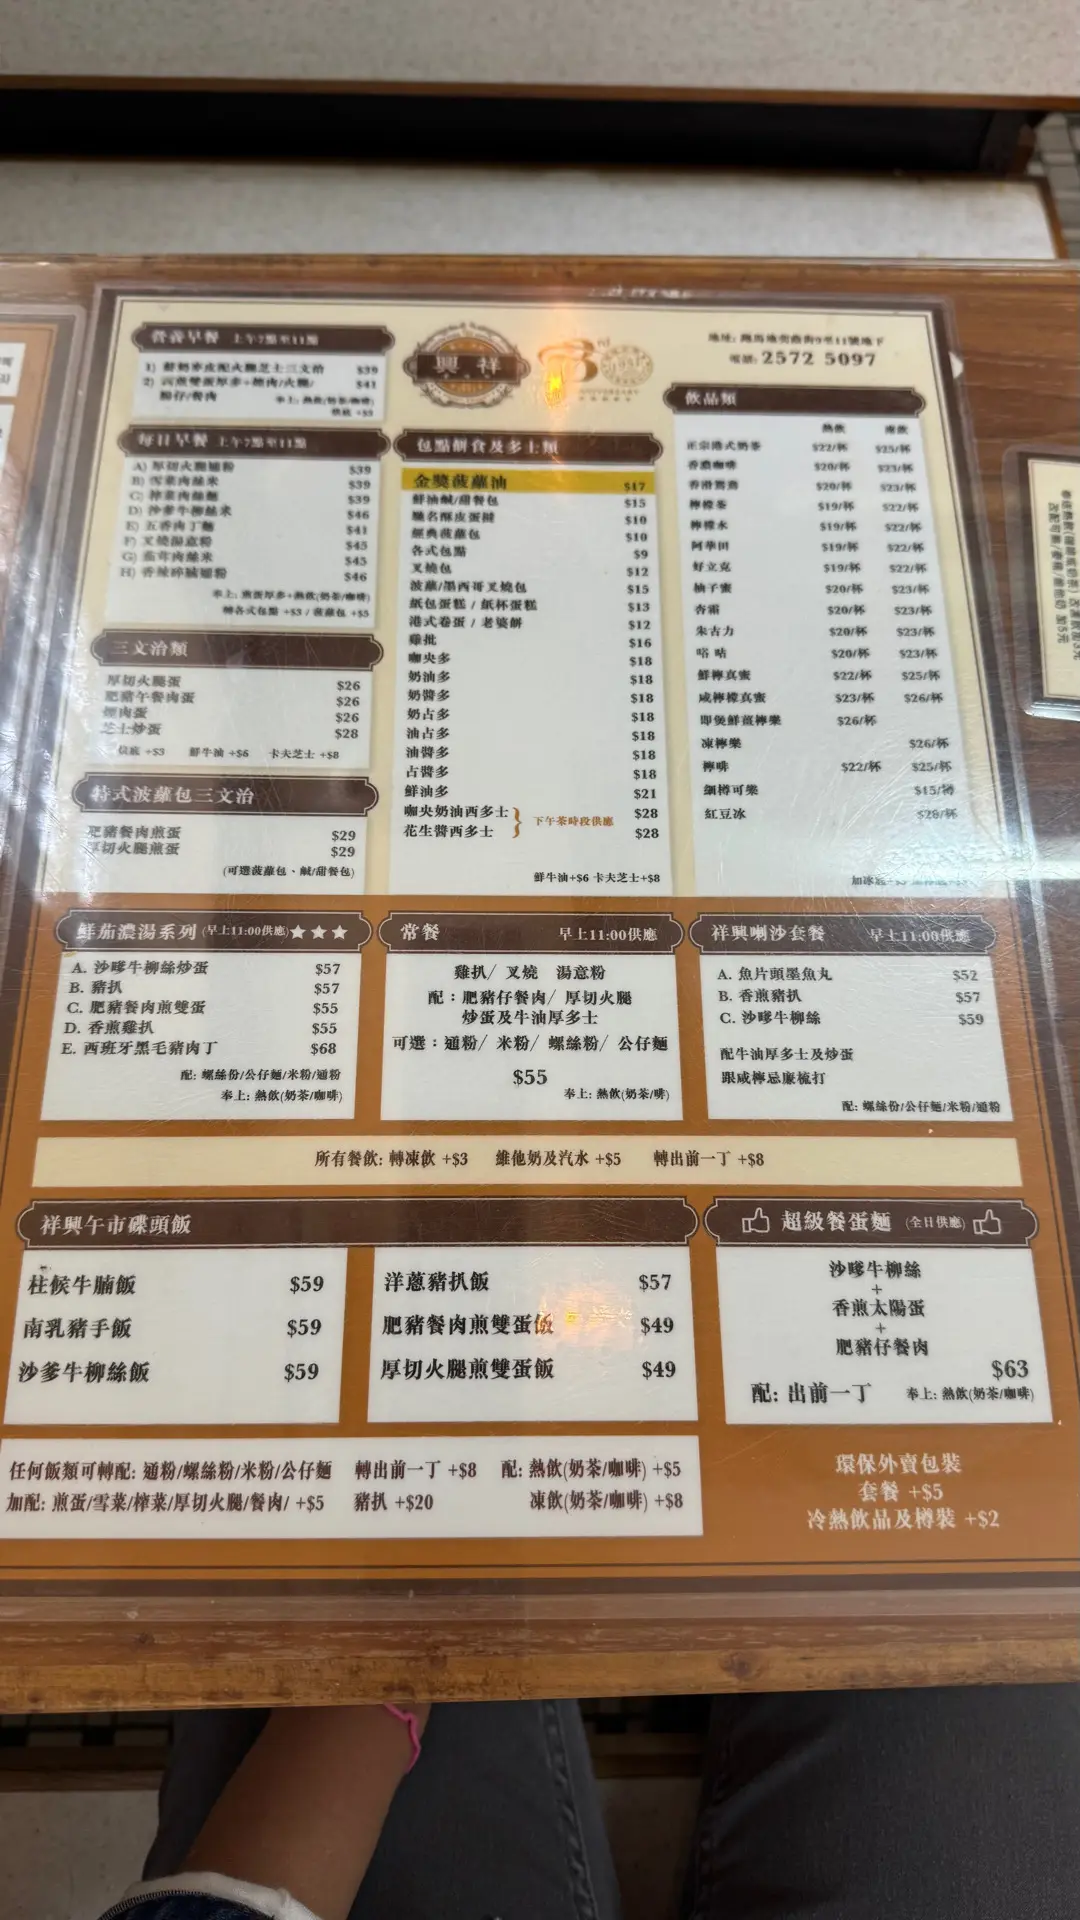 營養早餐 上午7點至11點
1) 鮮奶麥皮配火腿芝士三文治 $39
2) 西煎雙蛋厚多+煙肉/火腿/ $41
腸仔/餐肉 奉上: 熱飲(奶茶/咖啡)
烘底 +$3
每日早餐 上午7點至11點
A) 厚切火腿通粉 $39
B) 雪菜肉絲米 $39
C) 榨菜肉絲麵 $39
D) 沙爹牛柳絲米 $46
E) 五香肉丁麵 $41
F) 叉燒湯意粉 $45
G) 茄茸肉絲米 $45
H) 香辣碎腩通粉 $46
奉上: 煎蛋厚多+熱飲(奶茶/咖啡)
轉各式包點 +$3 / 菠蘿包 +$5
三文治類
厚切火腿蛋 $26
肥豬午餐肉蛋 $26
煙肉蛋 $26
芝士炒蛋 $28
烘底 +$3 鮮牛油 +$6 卡夫芝士 +$8
特式波蘿包三文治
肥豬餐肉煎蛋 $29
厚切火腿煎蛋 $29
(可選菠蘿包、鹹/甜餐包)
興祥
包點餅食及多士類
金獎菠蘿油 $17
鮮油鹹/甜餐包 $15
馳名酥皮蛋撻 $10
經典菠蘿包 $10
各式包點 $9
叉燒包 $12
波蘿/墨西哥叉燒包 $15
紙包蛋糕 / 紙杯蛋糕 $13
港式卷蛋 / 老婆餅 $12
雞批 $16
咖央多 $18
奶油多 $18
奶醬多 $18
奶占多 $18
油占多 $18
油醬多 $18
占醬多 $18
鮮油多 $21
咖央奶油西多士 $28
花生醬西多士 $28
下午茶時段供應
鮮牛油+$6 卡夫芝士+$8
地址: 跑馬地奕蔭街9至11號地下
電話: 2572 5097
飲品類
熱飲 凍飲
正宗港式奶茶 $22/杯 $25/杯
香濃咖啡 $20/杯 $23/杯
香滑鴛鴦 $20/杯 $23/杯
檸檬茶 $19/杯 $22/杯
檸檬水 $19/杯 $22/杯
阿華田 $19/杯 $22/杯
好立克 $19/杯 $22/杯
柚子蜜 $20/杯 $23/杯
杏霜 $20/杯 $23/杯
朱古力 $20/杯 $23/杯
唂咕 $20/杯 $23/杯
鮮檸真蜜 $22/杯 $25/杯
咸檸檬真蜜 $23/杯 $26/杯
即煲鮮薑檸樂 $26/杯
凍檸樂 $26/杯
檸啡 $22/杯 $25/杯
細樽可樂 $15/樽
紅豆冰 $28/杯
鮮茄濃湯系列 (早上11:00供應)★★★
A. 沙嗲牛柳絲炒蛋 $57
B. 豬扒 $57
C. 肥豬餐肉煎雙蛋 $55
D. 香煎雞扒 $55
E. 西班牙黑毛豬肉丁 $68
配: 螺絲份/公仔麵/米粉/通粉
奉上: 熱飲(奶茶/咖啡)
常餐 早上11:00供應
雞扒/ 叉燒 湯意粉
配：肥豬仔餐肉/ 厚切火腿
炒蛋及牛油厚多士
可選：通粉/ 米粉/ 螺絲粉/ 公仔麵
$55
奉上: 熱飲(奶茶/啡)
祥興喇沙套餐 早上11:00供應
A. 魚片頭墨魚丸 $52
B. 香煎豬扒 $57
C. 沙嗲牛柳絲 $59
配牛油厚多士及炒蛋
跟咸檸忌廉梳打
配: 螺絲份/公仔麵/米粉/通粉
所有餐飲: 轉凍飲 +$3 維他奶及汽水 +$5 轉出前一丁 +$8
祥興午市碟頭飯
柱候牛腩飯 $59
南乳豬手飯 $59
沙爹牛柳絲飯 $59
洋蔥豬扒飯 $57
肥豬餐肉煎雙蛋飯 $49
厚切火腿煎雙蛋飯 $49
超級餐蛋麵 (全日供應)
沙嗲牛柳絲
+
香煎太陽蛋
+
肥豬仔餐肉
$63
配: 出前一丁 奉上: 熱飲(奶茶/咖啡)
任何飯類可轉配: 通粉/螺絲粉/米粉/公仔麵 轉出前一丁 +$8 配: 熱飲(奶茶/咖啡) +$5
加配: 煎蛋/雪菜/榨菜/厚切火腿/餐肉/ +$5 豬扒 +$20 凍飲(奶茶/咖啡) +$8
環保外賣包裝
套餐 +$5
冷熱飲品及樽裝 +$2